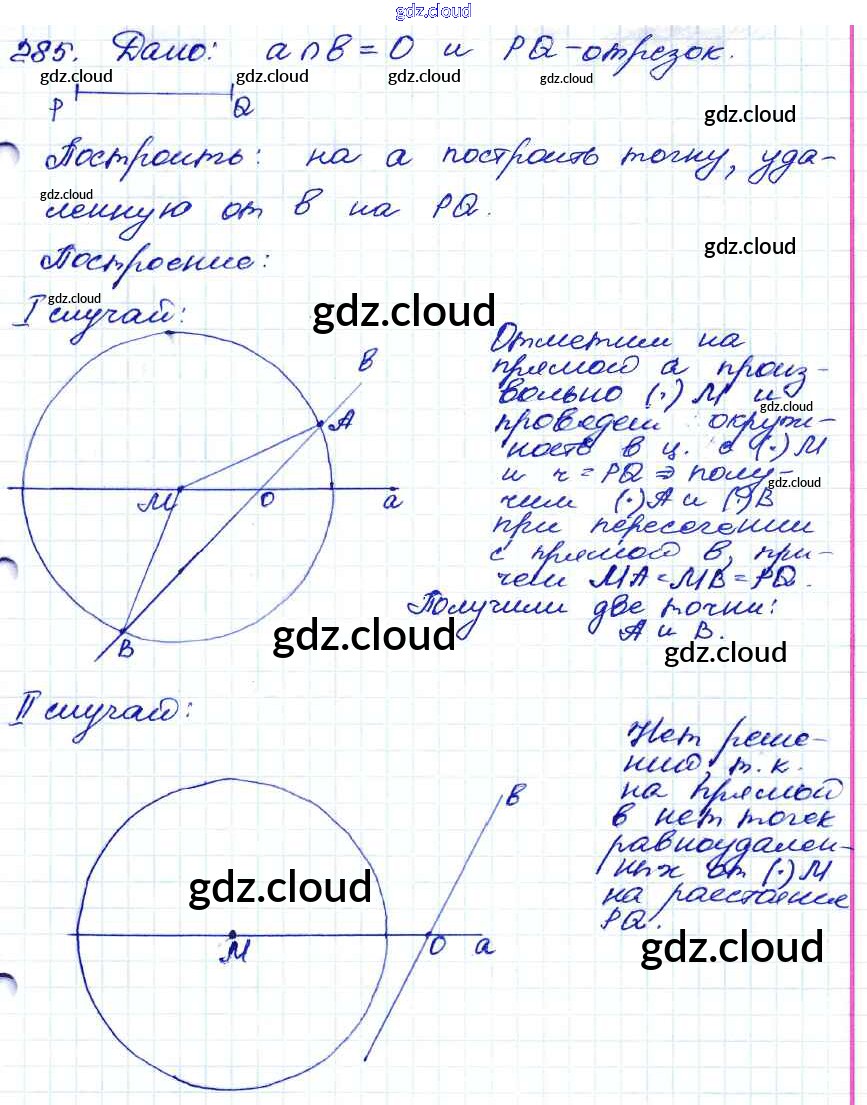 gdz.cloud
285. Дано: a ∩ b = O и PQ-отрезок.
gdz.cloud gdz.cloud gdz.cloud
P Q
gdz.cloud
Построить: на a построить точку, уда-
gdz.cloud
ленную от b на PQ.
gdz.cloud
Построение:
gdz.cloud
I случай:
gdz.cloud
Отметим на
прямой a произ-
вольно (·) M и
gdz.cloud
проведем окруж-
ность в ц. с (·) M
и r = PQ ⇒ полу-
gdz.cloud
чим (·) A и (·) B
при пересечении
с прямой b, при-
чем MA = MB = PQ.
Получили две точки:
A и B.
b
A
M O a
B
gdz.cloud
gdz.cloud
II случай:
Нет реше-
ний, т.к.
на прямой
b нет точек
равноудален-
ных от (·) M
на расстояние
PQ.
b
gdz.cloud
M O a
gdz.cloud